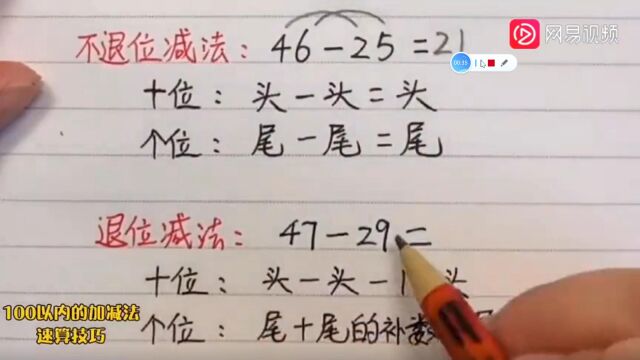 网易视频
不退位减法：46－25＝21
00:35
十位：头－头＝头
个位：尾－尾＝尾
退位减法：47－29＝
十位：头－头－1 头
个位：尾＋尾的补数
100以内的加减法
速算技巧